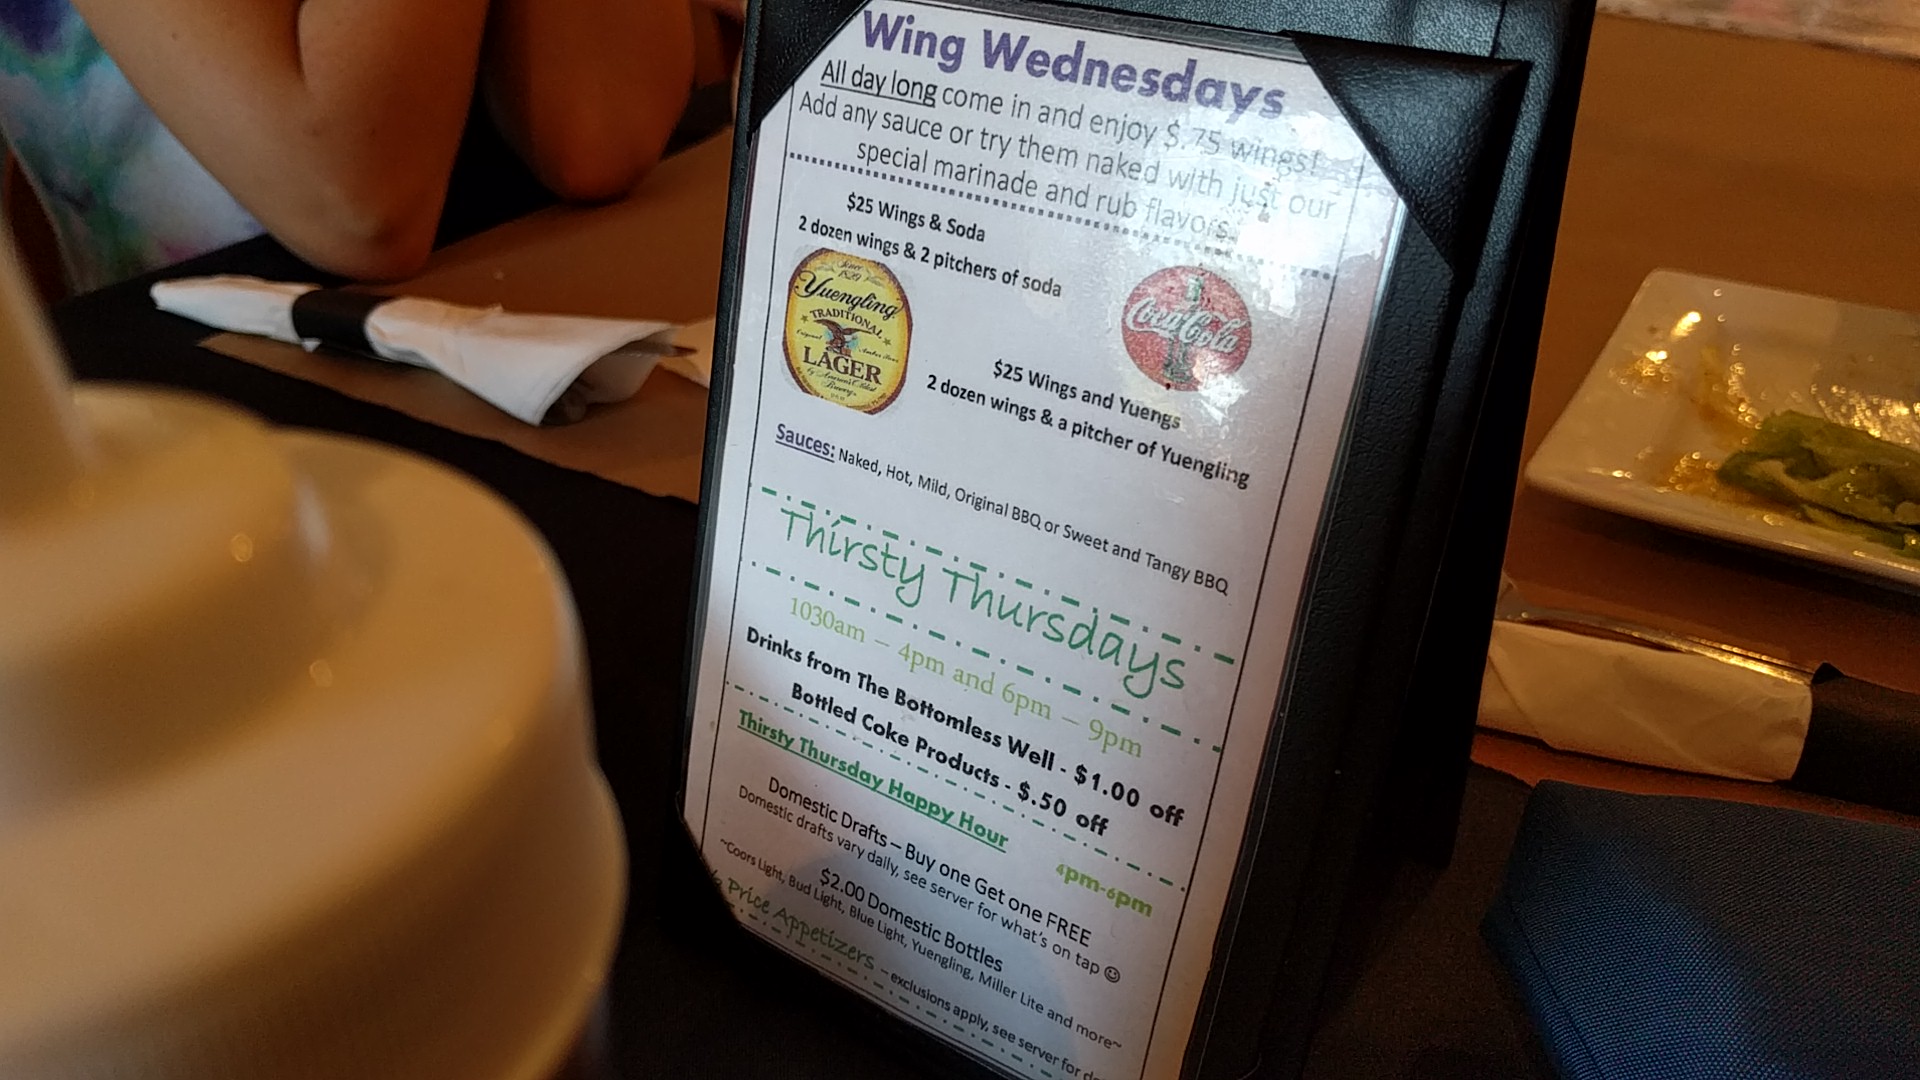 Wing Wednesdays
All day long come in and enjoy $.75 wings!
Add any sauce or try them naked with just our
special marinade and rub flavors.
$25 Wings & Soda
2 dozen wings & 2 pitchers of soda
Since 1829
Yuengling
TRADITIONAL
LAGER
by America's Oldest
Brewery
Coca-Cola
$25 Wings and Yuengs
2 dozen wings & a pitcher of Yuengling
Sauces: Naked, Hot, Mild, Original BBQ or Sweet and Tangy BBQ
Thirsty Thursdays
1030am – 4pm and 6pm – 9pm
Drinks from The Bottomless Well - $1.00 off
Bottled Coke Products - $.50 off
Thirsty Thursday Happy Hour 4pm-6pm
Domestic Drafts – Buy one Get one FREE
Domestic drafts vary daily, see server for what's on tap ☺
$2.00 Domestic Bottles
~Coors Light, Bud Light, Blue Light, Yuengling, Miller Lite and more~
Price Appetizers – exclusions apply, see server for